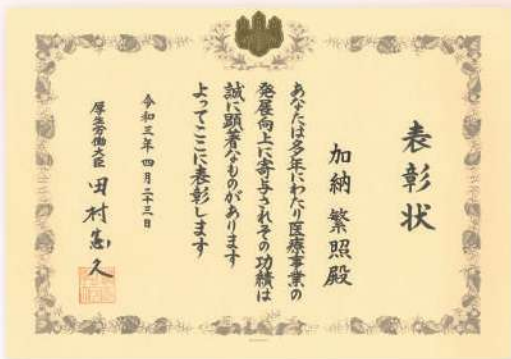 表彰状
加納繁照殿
あなたは多年にわたり医療事業の
発展向上に寄与されその功績は
誠に顕著なものがあります
よってここに表彰します
令和三年四月二十三日
厚生労働大臣 田村憲久